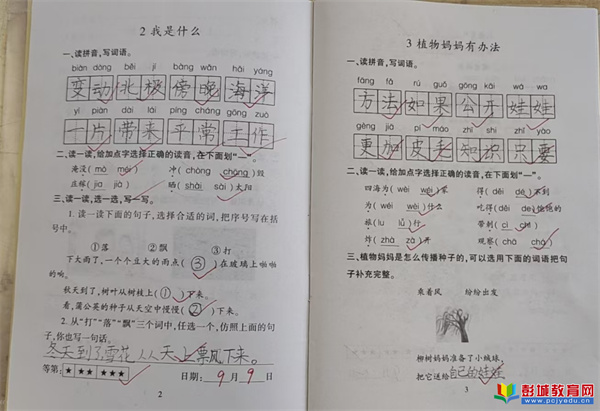 2 我是什么
一、读拼音,写词语。
biàn dòng běi jí bàng wǎn hǎi yáng
变动 北极 傍晚 海洋
yí piàn dài lái píng cháng gōng zuò
一片 带来 平常 工作
二、读一读,给加点字选择正确的读音,在下面划“—”。
淹没(mò méi) 冲(chòng chōng)毁
庄稼(jia jià) 晒(shài sài)太阳
三、读一读,选一选,写一写。
1. 读一读下面的句子,选择合适的词,把序号写在括
号中。
①落 ②飘 ③打
下大雨了,一个个豆大的雨点(③)在玻璃上啪啪
的响。
秋天到了,树叶从树枝上(①)下来。
看,蒲公英的种子从天空中慢慢(②)下来。
2. 从“打”“落”“飘”三个词中,任选一个,仿照上面的句
子,你也写一句话。
冬天到了雪花从从天上飘下来。
等第: ★ ★★ ★★★ 日期: 9 月 9 日
2
3 植物妈妈有办法
一、读拼音,写词语。
fāng fǎ rú guǒ gōng kāi wá wa
方法 如果 公开 娃娃
gèng jiā pí máo zhī shi zhǐ yào
更加 皮毛 知识 只要
二、读一读,给加点字选择正确的读音,在下面划“—”。
四海为(wéi wèi)家 得(děi dé)不到
为(wéi wèi)什么 吃得(děi de)饱饱的
旅(lu lǚ)行 带刺(cì chì)
炸(zhà zà)开 观察(chá chà)
三、植物妈妈是怎么传播种子的,可以选用下面的词语把句
子补充完整。
乘着风 纷纷出发
柳树妈妈准备了小绒球,
把它送给自己的娃娃
3
彭城教育网
www.pcjyedu.com